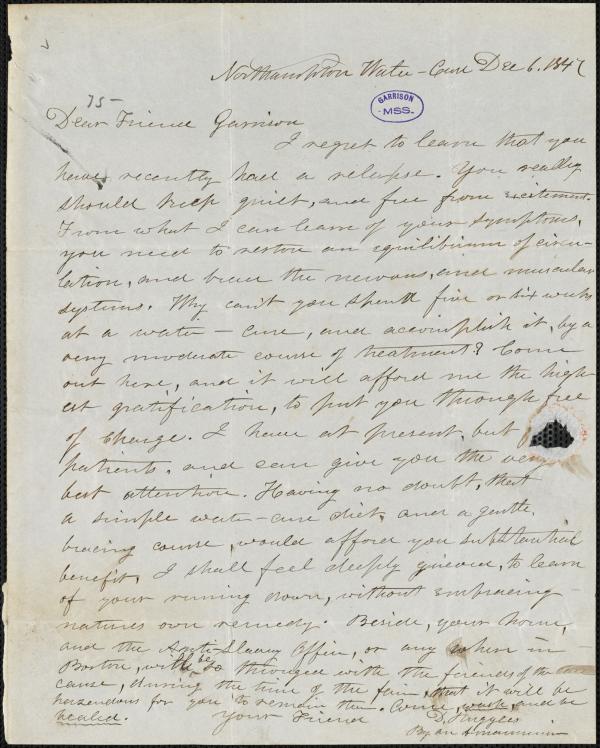 Northampton Water-Cure Dec 6. 1847
75-
GARRISON
MSS.
Dear Friend Garrison
I regret to learn that you
have recently had a relapse. You really
should keep quiet, and free from excitement.
From what I can learn of your symptoms,
you need to restore an equilibrium of circu-
lation, and brace the nervous, and muscular
systems. Why can't you spend five or six weeks
at a water-cure, and accomplish it, by a
very moderate course of treatment? Come
out here, and it will afford me the high-
est gratification, to put you through free
of charge. I have at present, but f
patients, and can give you the very
best attention. Having no doubt, that
a simple water-cure diet, and a gentle
bracing course, would afford you substantial
benefit, I shall feel deeply grieved, to learn
of your running down, without embracing
natures own remedy. Beside, your home,
and the Anti-Slavery Office, or any where in
Boston, will be so thronged with the friends of the
cause, during the time of the fair, that it will be
hazardous for you to remain there. Come, wash and be
healed. Your Friend D. Ruggles
By an Amanuensis